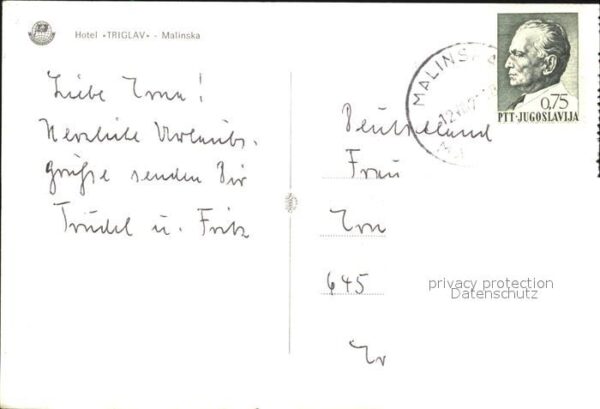 Hotel «TRIGLAV» - Malinska
Liebe Erna!
Herzliche Urlaubs-
grüße senden Dir
Trudel u. Fritz
Deutschland
Frau
Ern
645
MALINSKA
0,75
PTT·JUGOSLAVIJA
privacy protection
Datenschutz